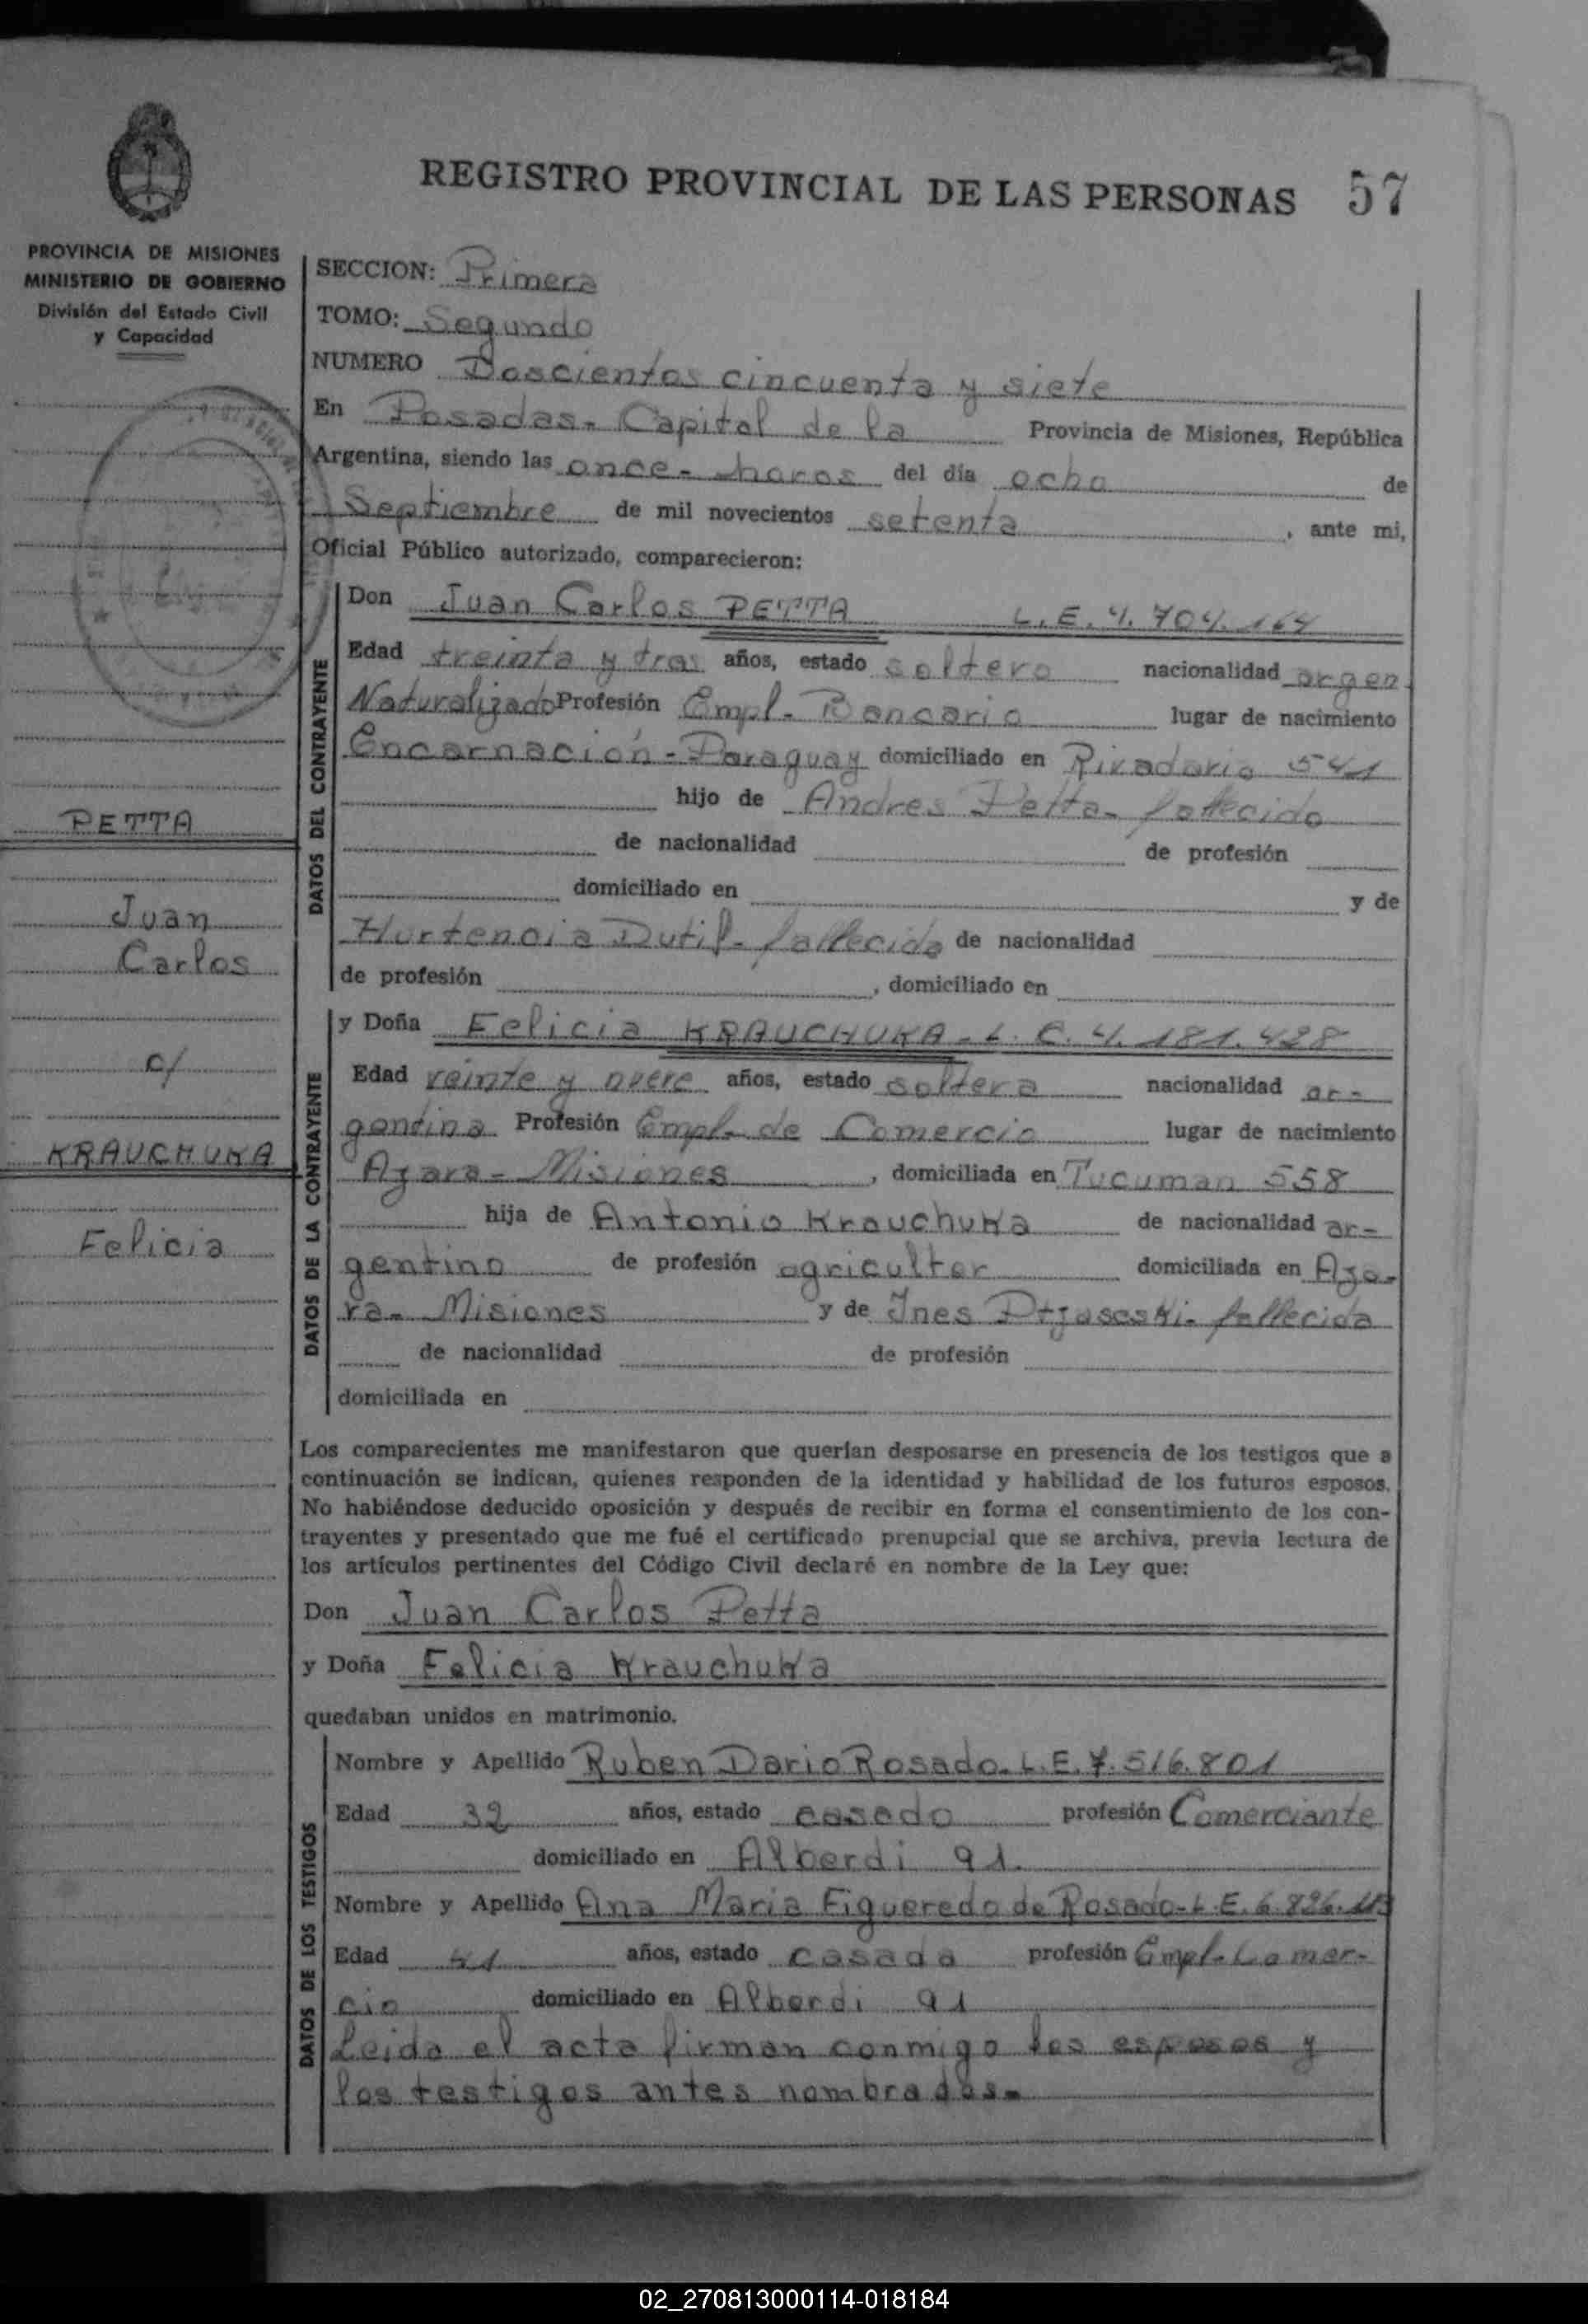 REGISTRO PROVINCIAL DE LAS PERSONAS 57
PROVINCIA DE MISIONES
MINISTERIO DE GOBIERNO
División del Estado Civil
y Capacidad
SECCION: Primera
TOMO: Segundo
NUMERO Doscientos cincuenta y siete
En Posadas- Capital de la Provincia de Misiones, República
Argentina, siendo las once- horas del día ocho de
Septiembre de mil novecientos setenta, ante mi,
Oficial Público autorizado, comparecieron:
DATOS DEL CONTRAYENTE
Don Juan Carlos PETTA L.E. 4. 704. 164
Edad treinta y tres años, estado soltero nacionalidad argen
Naturalizado Profesión Empl- Bancario lugar de nacimiento
Encarnación- Paraguay domiciliado en Rivadavia 541
hijo de Andres Petta- fallecido
de nacionalidad de profesión
domiciliado en y de
Hortencia Dutil- fallecida de nacionalidad
de profesión , domiciliado en
PETTA
Juan
Carlos
c/
KRAUCHUKA
Felicia
DATOS DE LA CONTRAYENTE
y Doña Felicia KRAUCHUKA- L. C. 4. 181. 428
Edad veinte y nueve años, estado soltera nacionalidad ar-
gentina Profesión Empl- de Comercio lugar de nacimiento
Azara- Misiones , domiciliada en Tucuman 558
hija de Antonio Krauchuka de nacionalidad ar-
gentino de profesión agricultor domiciliada en Aza-
ra- Misiones y de Ines fallecida
de nacionalidad de profesión
domiciliada en
Los comparecientes me manifestaron que querían desposarse en presencia de los testigos que a
continuación se indican, quienes responden de la identidad y habilidad de los futuros esposos.
No habiéndose deducido oposición y después de recibir en forma el consentimiento de los con-
trayentes y presentado que me fué el certificado prenupcial que se archiva, previa lectura de
los artículos pertinentes del Código Civil declaré en nombre de la Ley que:
Don Juan Carlos Petta
y Doña Felicia Krauchuka
quedaban unidos en matrimonio.
DATOS DE LOS TESTIGOS
Nombre y Apellido Ruben Dario Rosado- L.E. 7.516.801
Edad 32 años, estado casado profesión Comerciante
domiciliado en Alberdi 91.
Nombre y Apellido Ana Maria Figueredo de Rosado- L.E. 6.
Edad 41 años, estado casada profesión Empl- Comer-
cio domiciliado en Alberdi 91
Leida el acta firman conmigo los esposos y
los testigos antes nombrados-
02_270813000114-018184